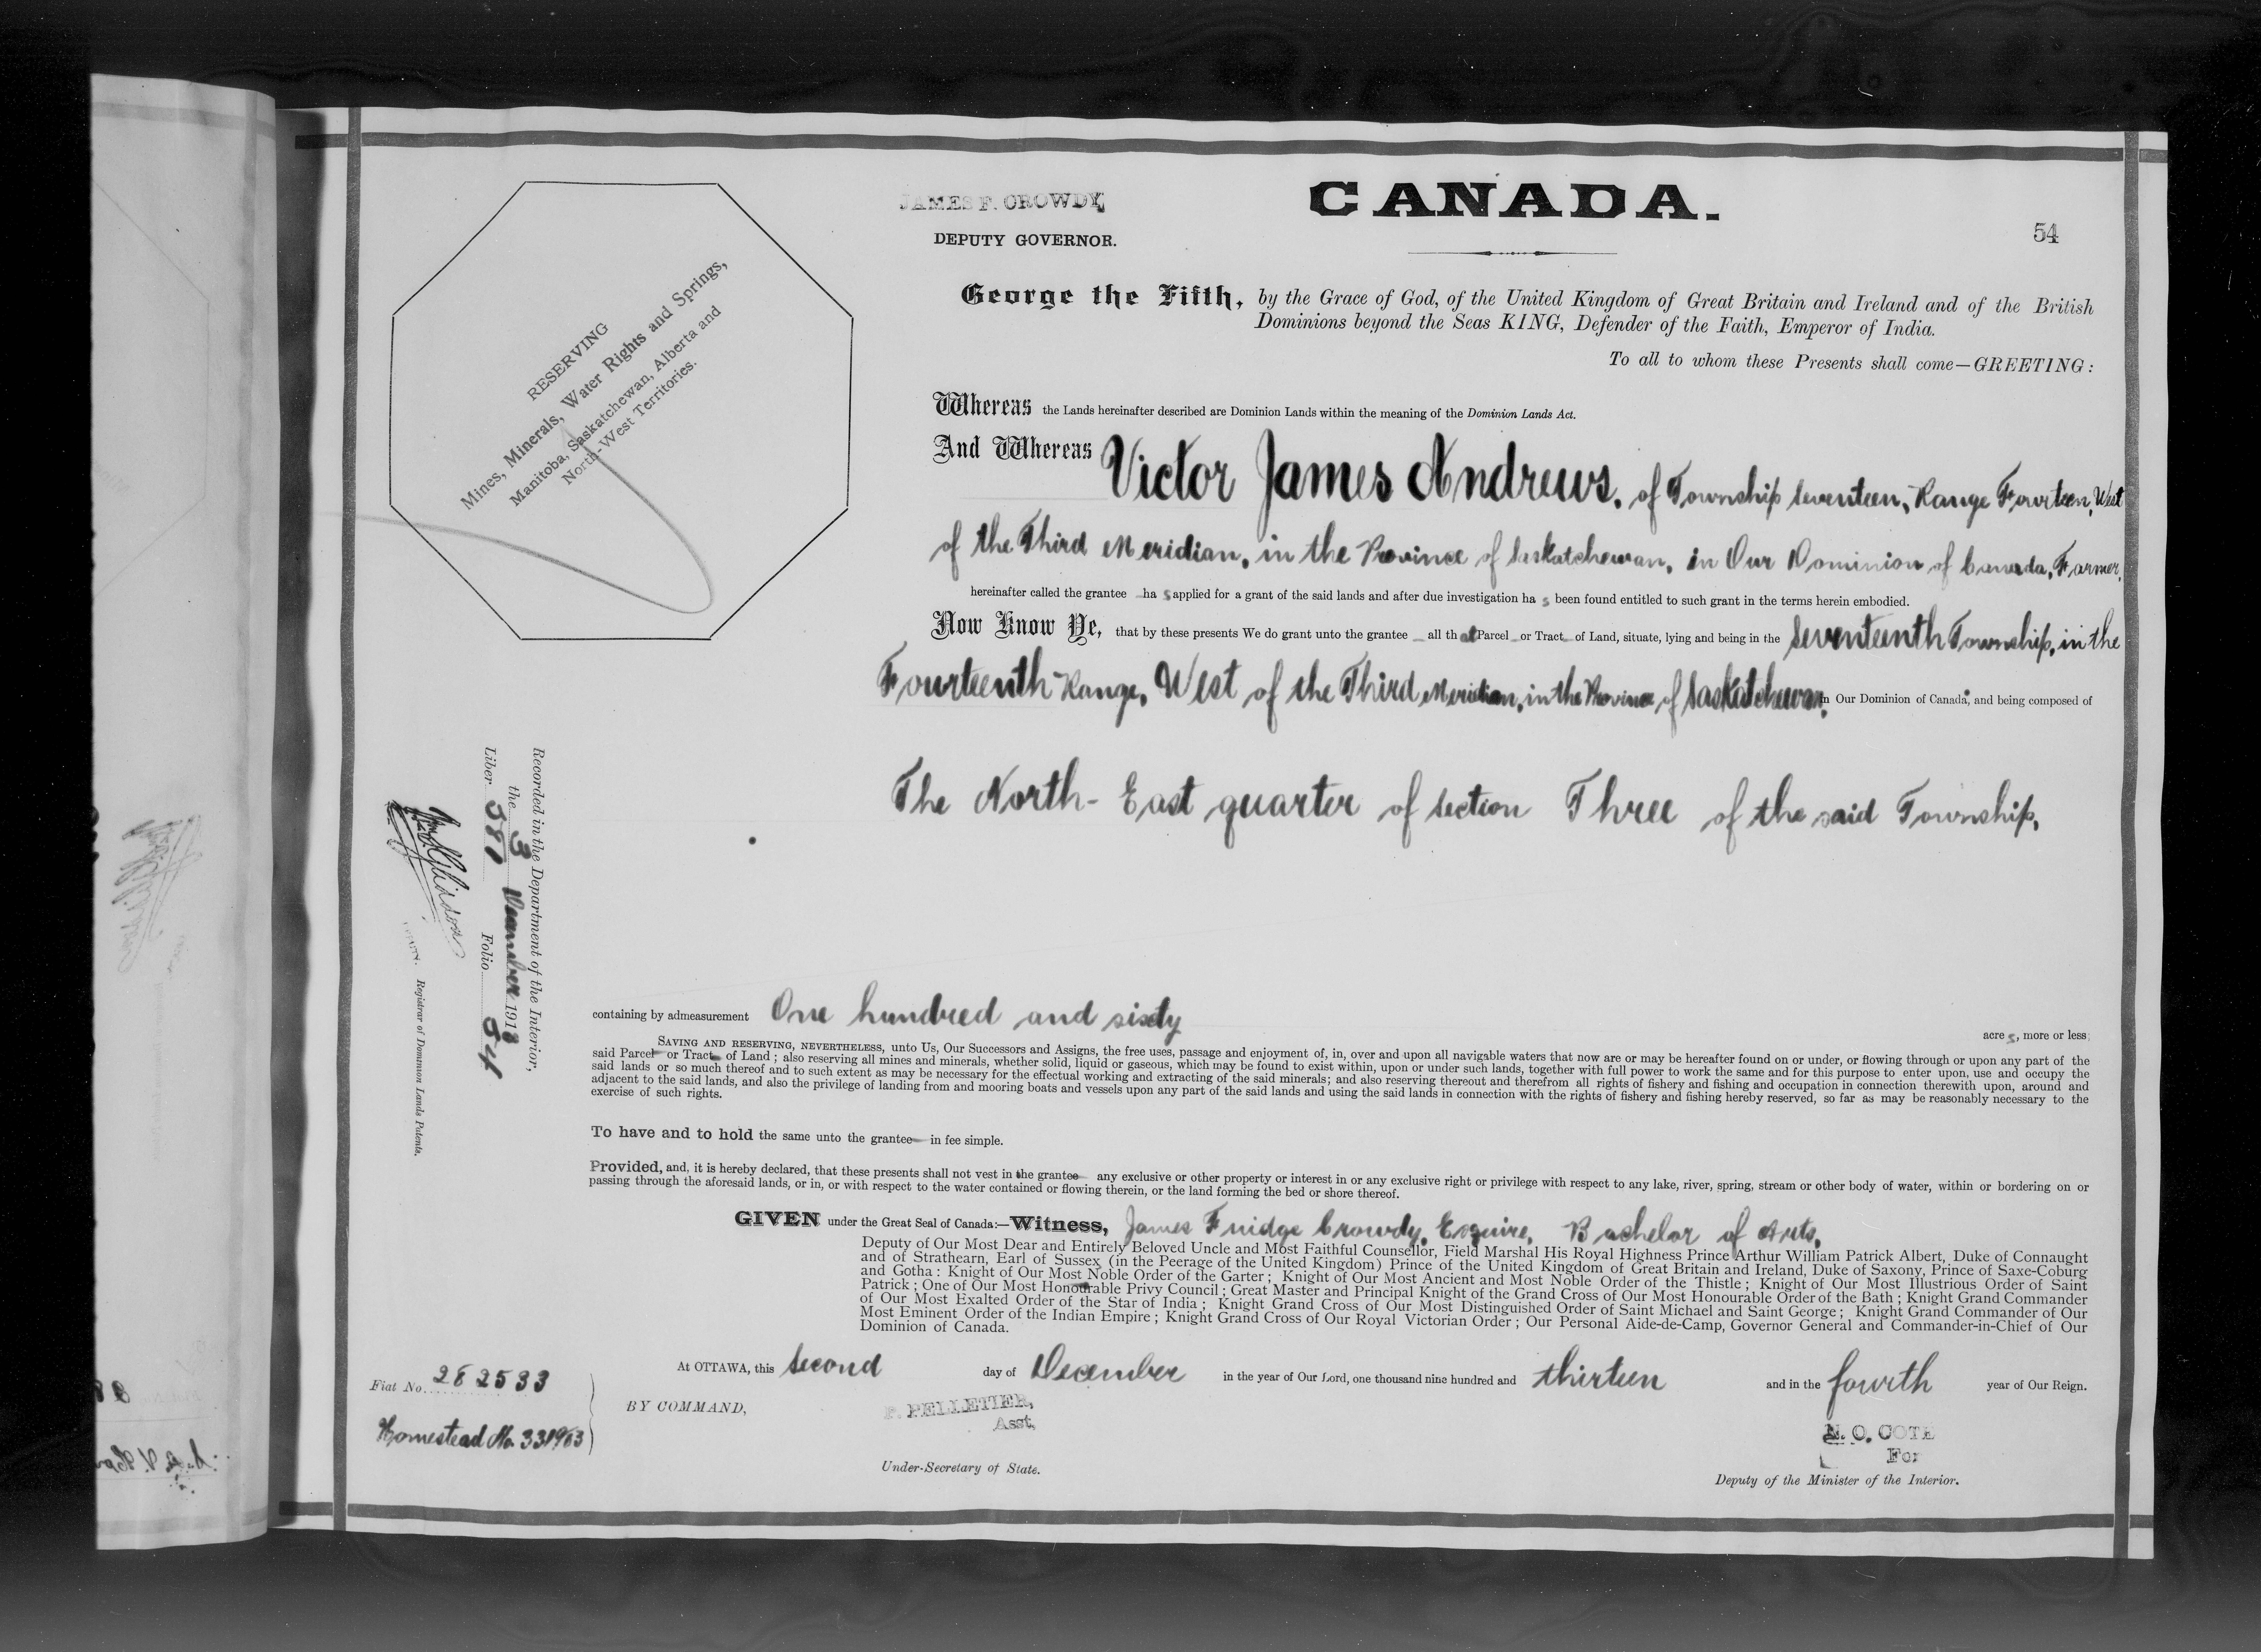 CANADA.
JAMES F. CROWDY,
DEPUTY GOVERNOR.
54
RESERVING
Mines, Minerals, Water Rights and Springs,
Manitoba, Saskatchewan, Alberta and
North-West Territories.
George the Fifth, by the Grace of God, of the United Kingdom of Great Britain and Ireland and of the British
Dominions beyond the Seas KING, Defender of the Faith, Emperor of India.
To all to whom these Presents shall come—GREETING:
Whereas the Lands hereinafter described are Dominion Lands within the meaning of the Dominion Lands Act.
And Whereas Victor James Andrews, of Township seventeen, Range Fourteen, West
of the Third Meridian, in the Province of Saskatchewan, in Our Dominion of Canada, Farmer,
hereinafter called the grantee has applied for a grant of the said lands and after due investigation has been found entitled to such grant in the terms herein embodied.
Now Know Ye, that by these presents We do grant unto the grantee all that Parcel or Tract of Land, situate, lying and being in the seventeenth Township, in the
Fourteenth Range, West of the Third Meridian, in the Province of Saskatchewan, in Our Dominion of Canada, and being composed of
The North-East quarter of section Three of the said Township,
containing by admeasurement One hundred and sixty acres, more or less.
SAVING AND RESERVING, NEVERTHELESS, unto Us, Our Successors and Assigns, the free uses, passage and enjoyment of, in, over and upon all navigable waters that now are or may be hereafter found on or under, or flowing through or upon any part of the
said Parcel or Tract of Land; also reserving all mines and minerals, whether solid, liquid or gaseous, which may be found to exist within, upon or under such lands, together with full power to work the same and for this purpose to enter upon, use and occupy the
said lands or so much thereof and to such extent as may be necessary for the effectual working and extracting of the said minerals; and also reserving thereout and therefrom all rights of fishery and fishing and occupation in connection therewith upon, around and
adjacent to the said lands, and also the privilege of landing from and mooring boats and vessels upon any part of the said lands and using the said lands in connection with the rights of fishery and fishing hereby reserved, so far as may be reasonably necessary to the
exercise of such rights.
To have and to hold the same unto the grantee in fee simple.
Provided, and, it is hereby declared, that these presents shall not vest in the grantee any exclusive or other property or interest in or any exclusive right or privilege with respect to any lake, river, spring, stream or other body of water, within or bordering on or
passing through the aforesaid lands, or in, or with respect to the water contained or flowing therein, or the land forming the bed or shore thereof.
GIVEN under the Great Seal of Canada:—Witness, James Fuidge Crowdy, Esquire, Bachelor of Arts,
Deputy of Our Most Dear and Entirely Beloved Uncle and Most Faithful Counsellor, Field Marshal His Royal Highness Prince Arthur William Patrick Albert, Duke of Connaught
and of Strathearn, Earl of Sussex (in the Peerage of the United Kingdom) Prince of the United Kingdom of Great Britain and Ireland, Duke of Saxony, Prince of Saxe-Coburg
and Gotha: Knight of Our Most Noble Order of the Garter; Knight of Our Most Ancient and Most Noble Order of the Thistle; Knight of Our Most Illustrious Order of Saint
Patrick; One of Our Most Honourable Privy Council; Great Master and Principal Knight of the Grand Cross of Our Most Honourable Order of the Bath; Knight Grand Commander
of Our Most Exalted Order of the Star of India; Knight Grand Cross of Our Most Distinguished Order of Saint Michael and Saint George; Knight Grand Commander of Our
Most Eminent Order of the Indian Empire; Knight Grand Cross of Our Royal Victorian Order; Our Personal Aide-de-Camp, Governor General and Commander-in-Chief of Our
Dominion of Canada.
At OTTAWA, this second day of December in the year of Our Lord, one thousand nine hundred and thirteen and in the fourth year of Our Reign.
BY COMMAND,
P. PELLETIER,
Asst,
Under-Secretary of State.
N. O. COTE
For
Deputy of the Minister of the Interior.
Fiat No. 282533
Homestead No. 331963
Recorded in the Department of the Interior,
the 3 December 1913
Liber 381 Folio 54
Registrar of Dominion Lands Patents.